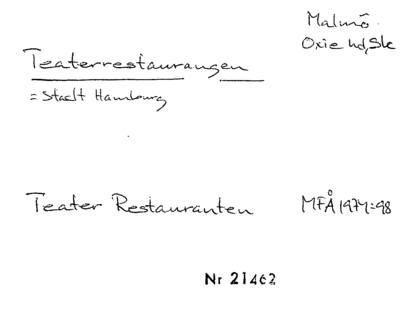 Malmö
Oxie hd, Sk
Teaterrestaurangen
= Stadt Hamburg
Teater Restauranten MFÅ 1974:98
Nr 21462